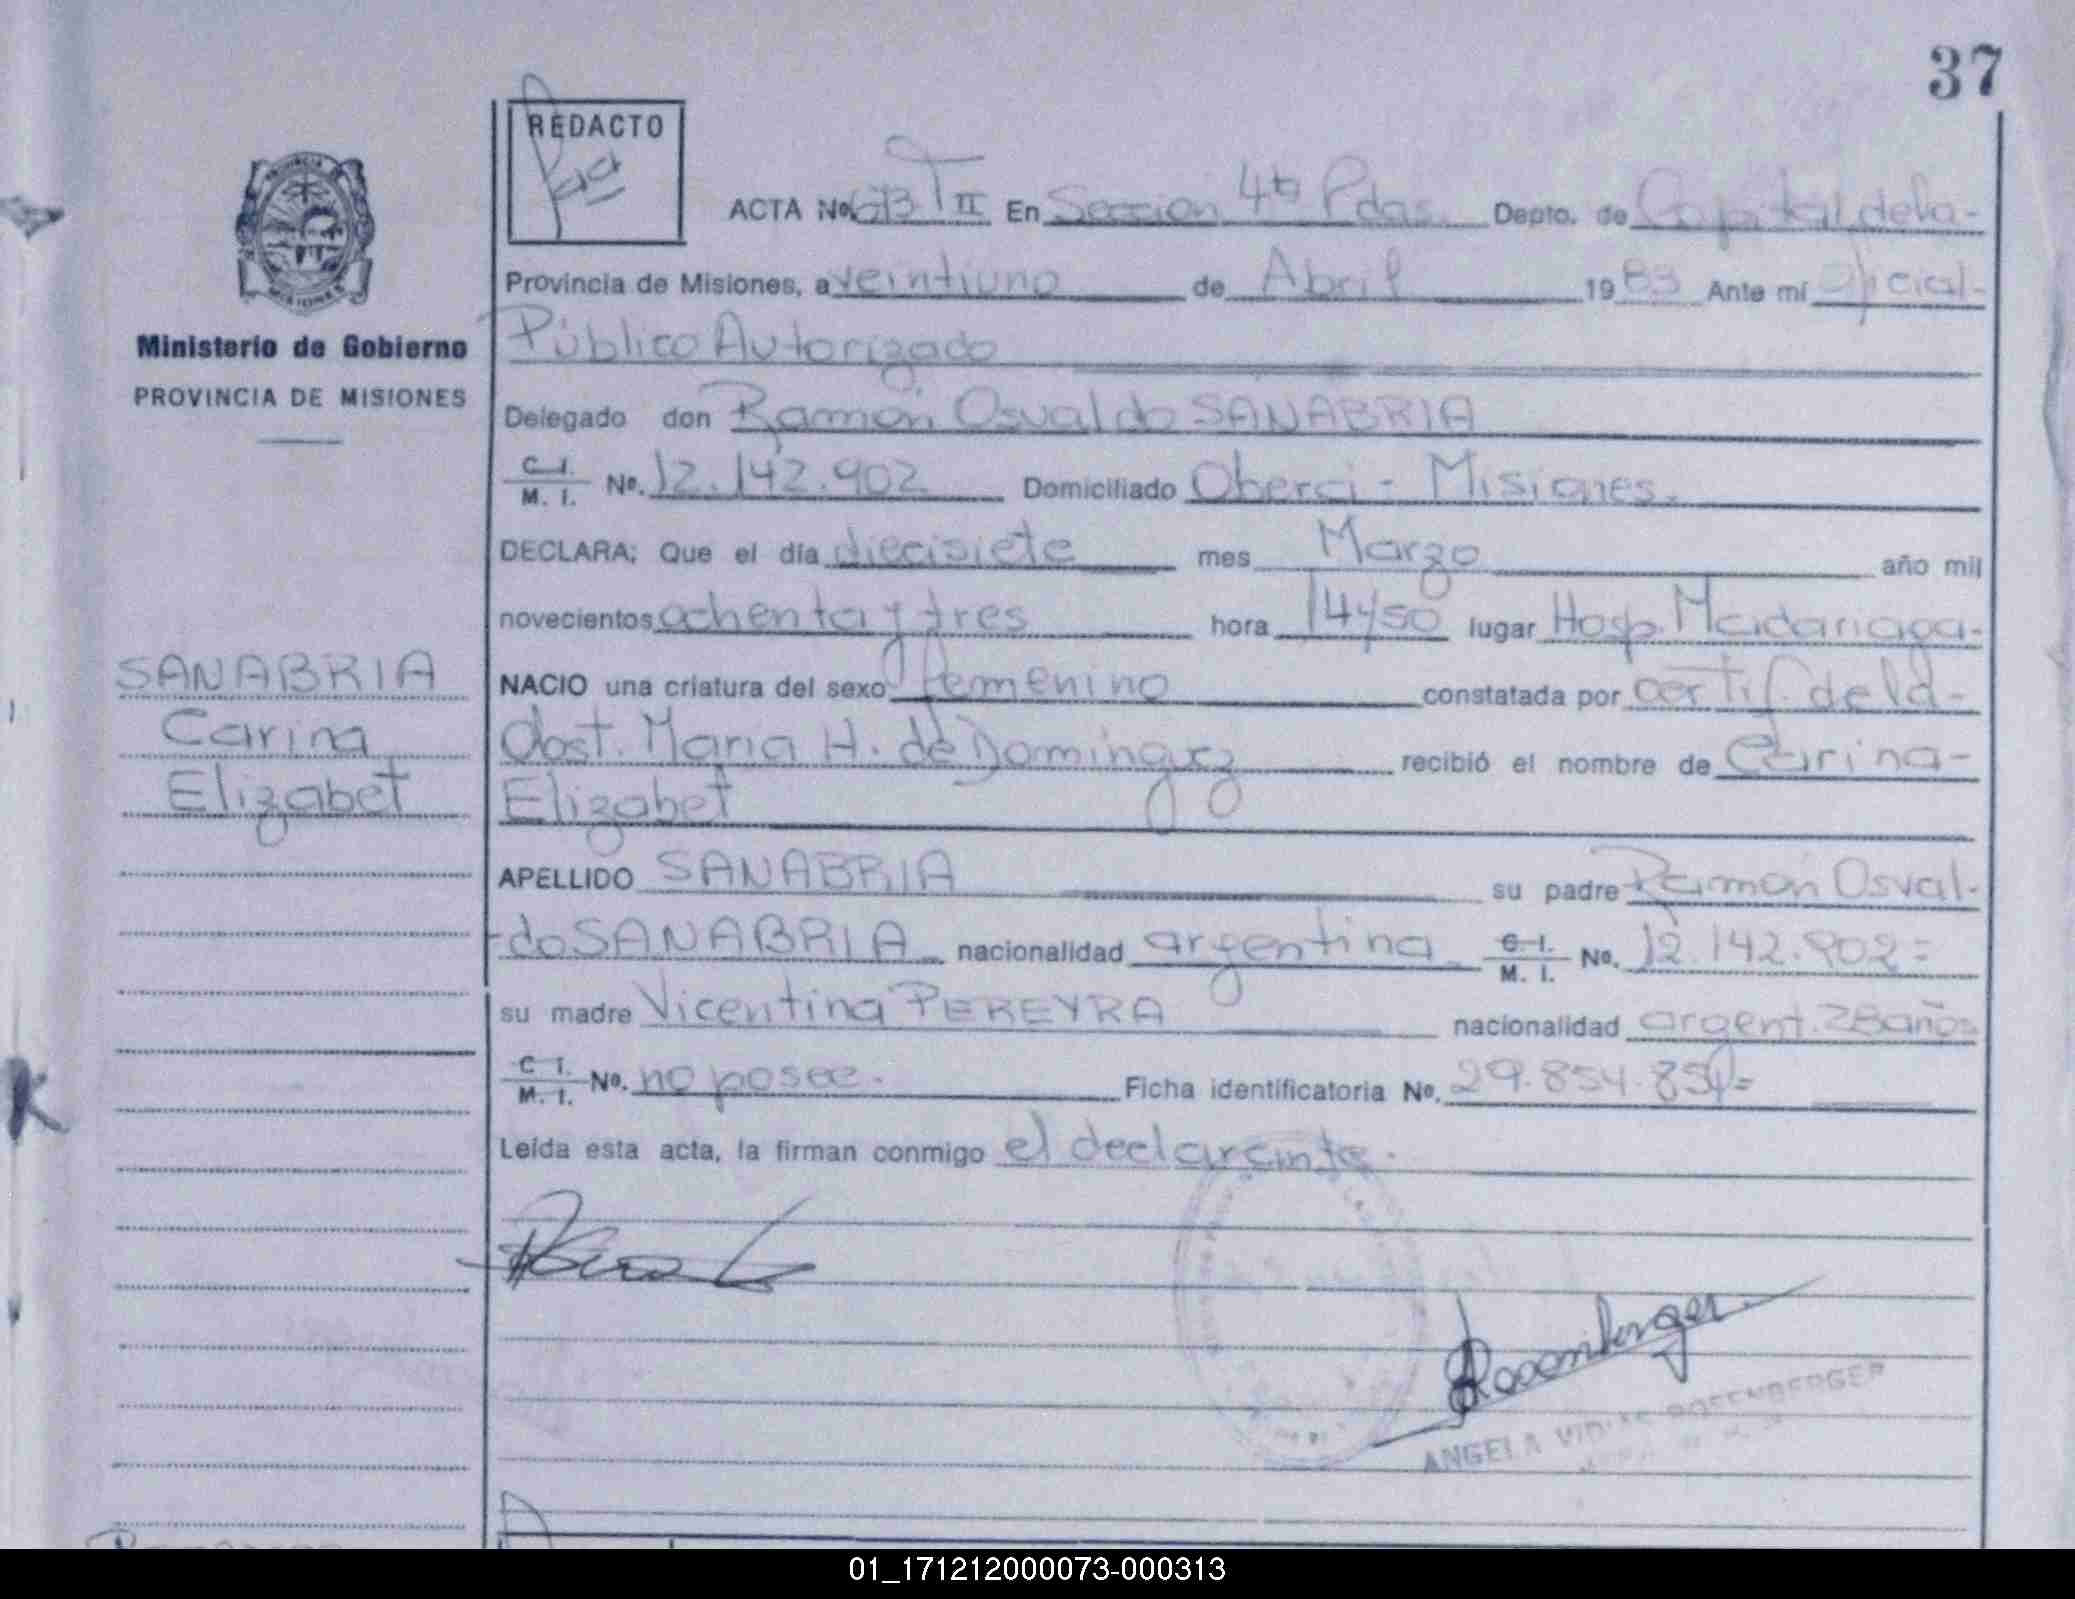 37
REDACTO
ACTA Nº 673 T II En Sección 4ta Pdas. Depto. de Capital dela-
Provincia de Misiones, a veintiuno de Abril 1983 Ante mí Oficial-
Ministerio de Gobierno
Público Autorizado
PROVINCIA DE MISIONES
Delegado don Ramón Osvaldo SANABRIA
C. I. M. I. Nº. 12.142.902 Domiciliado Oberá - Misiones.
DECLARA: Que el día diecisiete mes Marzo año mil
novecientos ochenta y tres hora 14y50 lugar Hosp. Madariaga-
SANABRIA
NACIO una criatura del sexo femenino constatada por certif. de la-
Carina
Obst. Maria H. de Dominguez recibió el nombre de Carina-
Elizabet
Elizabet
APELLIDO SANABRIA su padre Ramón Osval-
-do SANABRIA nacionalidad argentina C. I. M. I. Nº. 12.142.902=
su madre Vicentina PEREYRA nacionalidad argent. 28años
C. I. M. I. Nº. no posee. Ficha identificatoria Nº. 29.854.854=
Leída esta acta, la firman conmigo el declarante.
Rosemberger
ANGELA ROSENBERGER
01_171212000073-000313